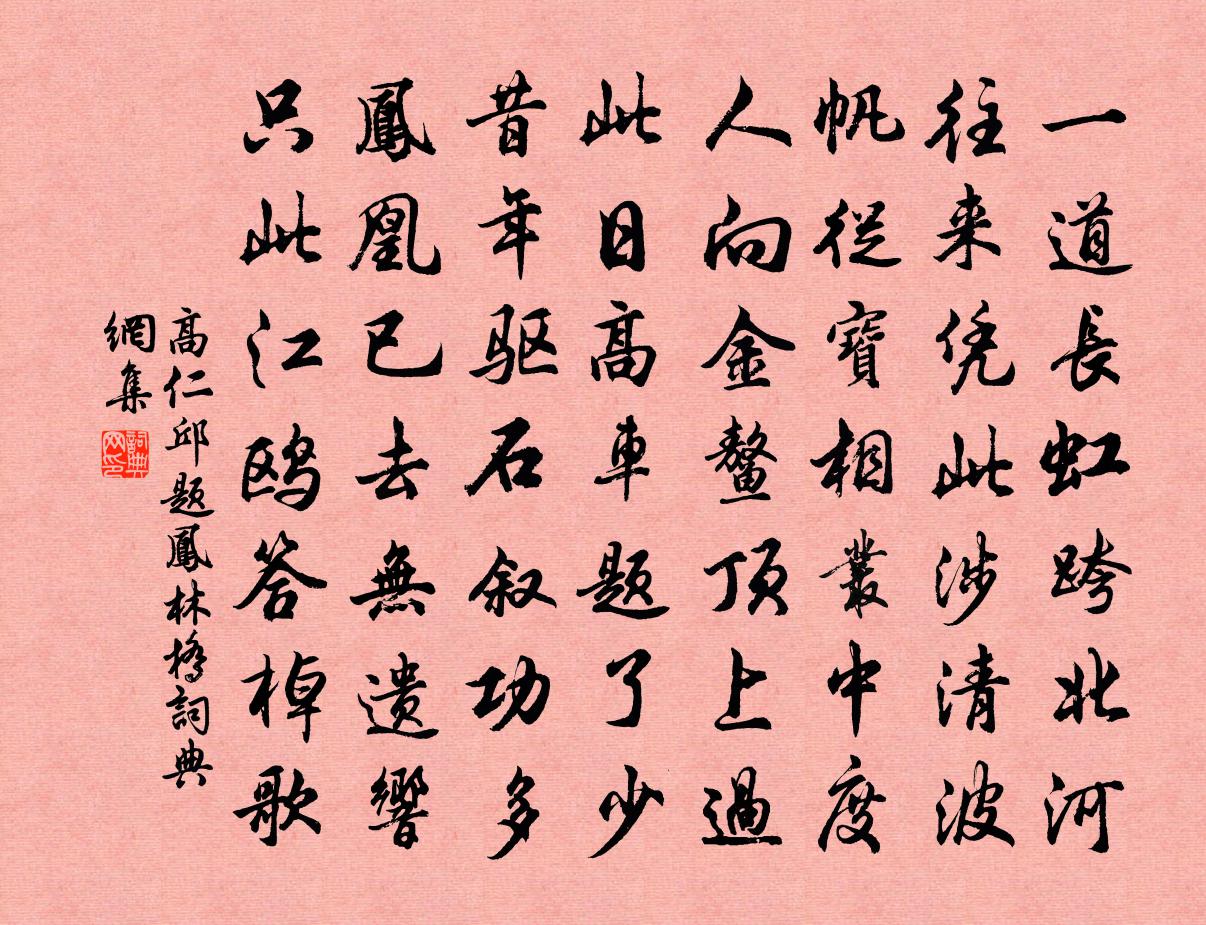 一道長虹跨北河
往来凭此涉清波
帆從寶相叢中度
人向金鳌頂上過
此日高車题了少
昔年驱石叙功多
鳳凰已去無遗響
只此江鸥答棹歌
高仁邱题鳳林橋詞典
網集
詞典
网印